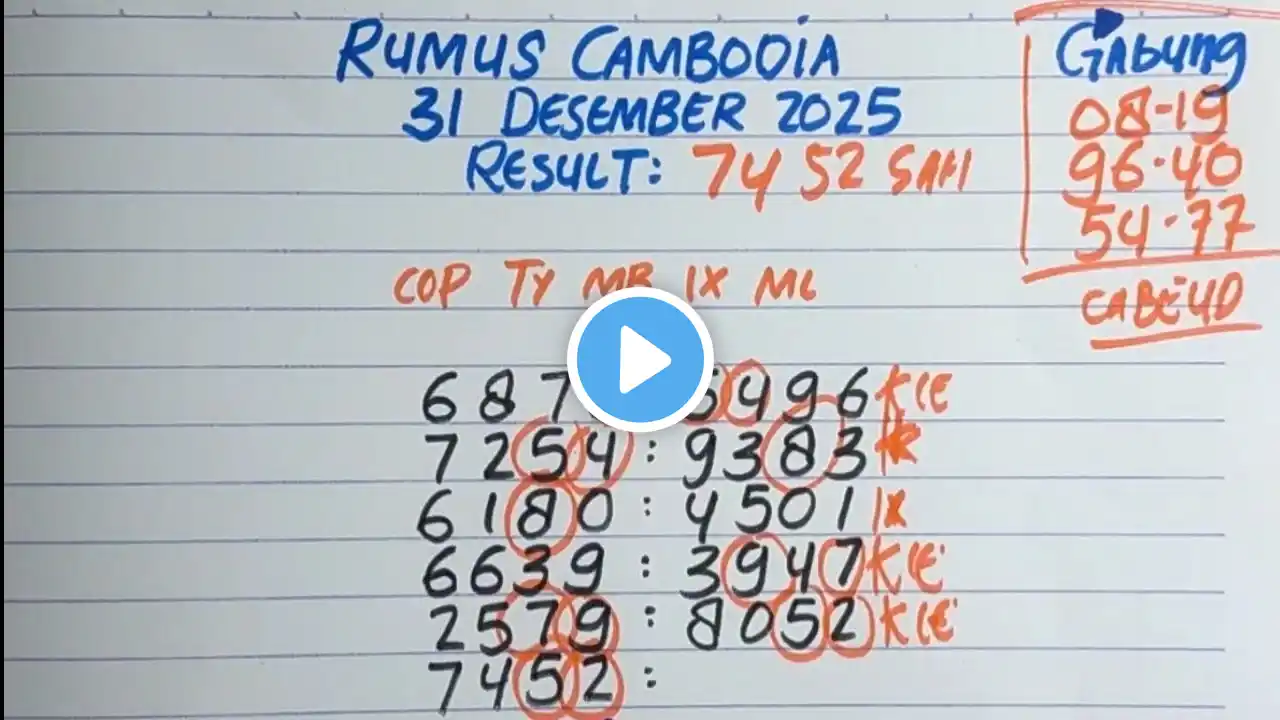 RUMUS CAMBODIA
31 DESEMBER 2025
RESULT: 7452 SAH
GABUNG
08-19
96-40
54-77
CABE 4D
COP TY MB IX ML
687 5496 KIE
7254 : 9383
6180 : 4501 IX
6639 : 3947 KIE
2579 : 8052 KIE
7452 :